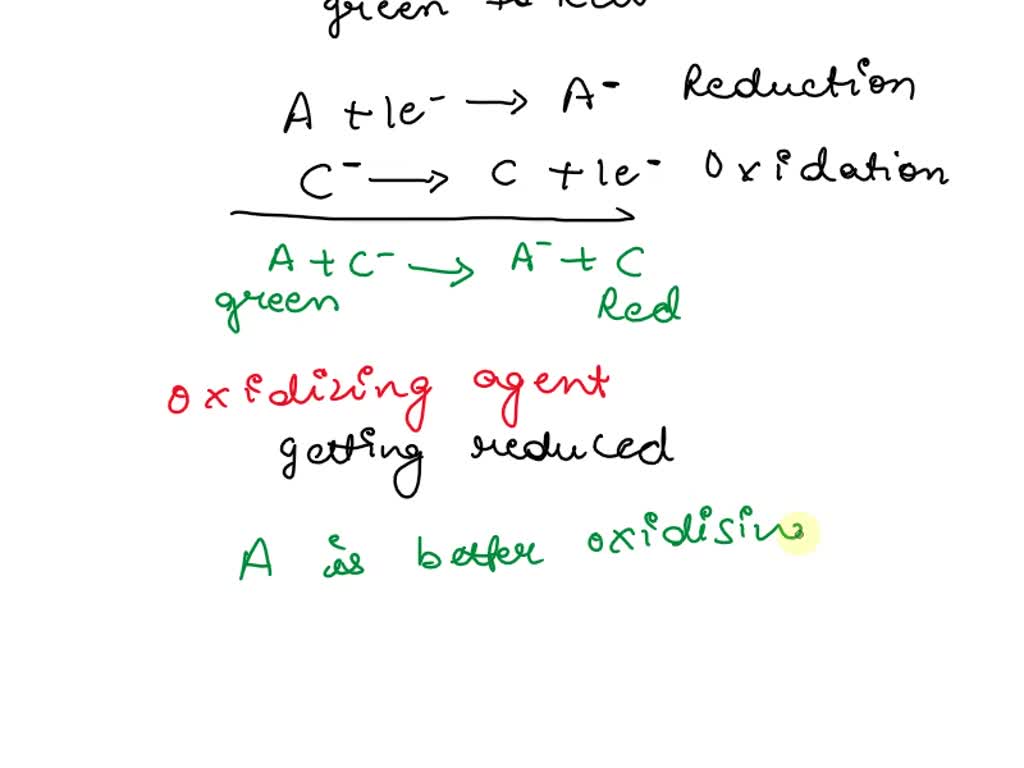 green to Red
A + 1e⁻ → A⁻ Reduction
C⁻ → C + 1e⁻ Oxidation
A + C⁻ → A⁻ + C
green Red
oxidizing agent
getting reduced
A is better oxidisin